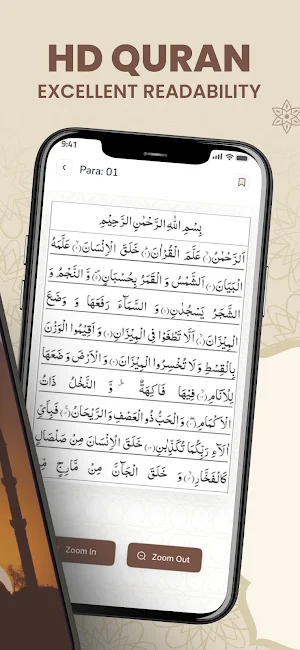 HD QURAN
EXCELLENT READABILITY
9:41
Para: 01
بِسْمِ اللهِ الرَّحْمٰنِ الرَّحِيْمِ
اَلرَّحْمٰنُ ۙ﴿۱﴾ عَلَّمَ الْقُرْاٰنَ ؕ﴿۲﴾ خَلَقَ الْاِنْسَانَ ۙ﴿۳﴾ عَلَّمَهُ
الْبَيَانَ ﴿۴﴾ اَلشَّمْسُ وَ الْقَمَرُ بِحُسْبَانٍ ﴿۵﴾ وَّ النَّجْمُ وَ
الشَّجَرُ يَسْجُدٰنِ ﴿۶﴾ وَ السَّمَآءَ رَفَعَهَا وَ وَضَعَ
الْمِيْزَانَ ۙ﴿۷﴾ اَلَّا تَطْغَوْا فِي الْمِيْزَانِ ﴿۸﴾ وَ اَقِيْمُوا الْوَزْنَ
بِالْقِسْطِ وَ لَا تُخْسِرُوا الْمِيْزَانَ ﴿۹﴾ وَ الْاَرْضَ وَ ضَعَهَا
لِلْاَنَامِ ﴿۱۰﴾ فِيْهَا فَاكِهَةٌ ۪ۙ وَّ النَّخْلُ ذَاتُ
الْاَكْمَامِ ﴿۱۱﴾ وَ الْحَبُّ ذُو الْعَصْفِ وَ الرَّيْحَانُ ﴿۱۲﴾ فَبِاَيِّ
اٰلَآءِ رَبِّكُمَا تُكَذِّبٰنِ ﴿۱۳﴾ خَلَقَ الْاِنْسَانَ مِنْ صَلْصَالٍ
كَالْفَخَّارِ ﴿۱۴﴾ وَ خَلَقَ الْجَآنَّ مِنْ مَّارِجٍ مِّنْ
Zoom In
Zoom Out